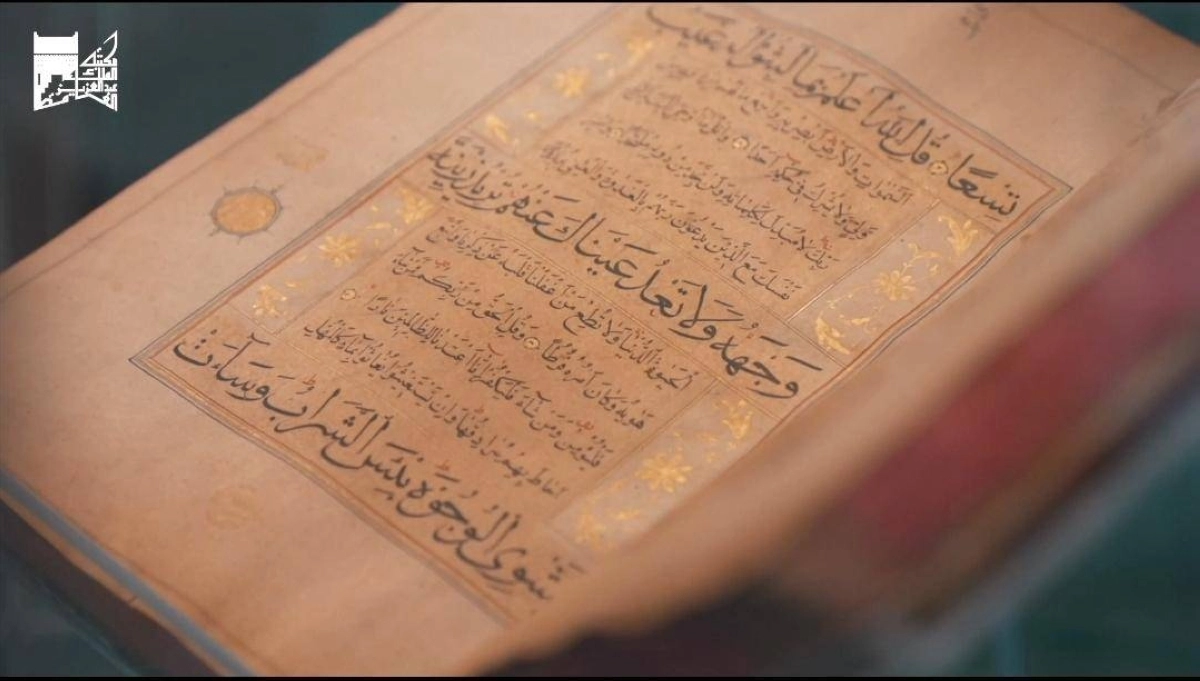 مكتبة
الملك
عبدالعزيز
العامة
تِسْعًا قُلِ اللَّهُ أَعْلَمُ بِمَا لَبِثُوا لَهُ غَيْبُ
السَّمٰوَاتِ وَالْأَرْضِ أَبْصِرْ بِهِ وَأَسْمِعْ مَا لَهُمْ مِنْ دُونِهِ مِنْ
وَلِيٍّ وَلَا يُشْرِكُ فِي حُكْمِهِ أَحَدًا وَاتْلُ مَا أُوحِيَ إِلَيْكَ مِنْ كِتَابِ
رَبِّكَ لَا مُبَدِّلَ لِكَلِمَاتِهِ وَلَنْ تَجِدَ مِنْ دُونِهِ مُلْتَحَدًا وَاصْبِرْ
نَفْسَكَ مَعَ الَّذِينَ يَدْعُونَ رَبَّهُمْ بِالْغَدٰوةِ وَالْعَشِيِّ يُرِيدُونَ
وَجْهَهُ وَلَا تَعْدُ عَيْنَاكَ عَنْهُمْ تُرِيدُ زِينَةَ
الْحَيٰوةِ الدُّنْيَا وَلَا تُطِعْ مَنْ أَغْفَلْنَا قَلْبَهُ عَنْ ذِكْرِنَا وَاتَّبَعَ
هَوٰيهُ وَكَانَ أَمْرُهُ فُرُطًا وَقُلِ الْحَقُّ مِنْ رَبِّكُمْ فَمَنْ شَاءَ
فَلْيُؤْمِنْ وَمَنْ شَاءَ فَلْيَكْفُرْ إِنَّا أَعْتَدْنَا لِلظَّالِمِينَ نَارًا
أَحَاطَ بِهِمْ سُرَادِقُهَا وَإِنْ يَسْتَغِيثُوا يُغَاثُوا بِمَاءٍ كَالْمُهْلِ
يَشْوِي الْوُجُوهَ بِئْسَ الشَّرَابُ وَسَاءَتْ